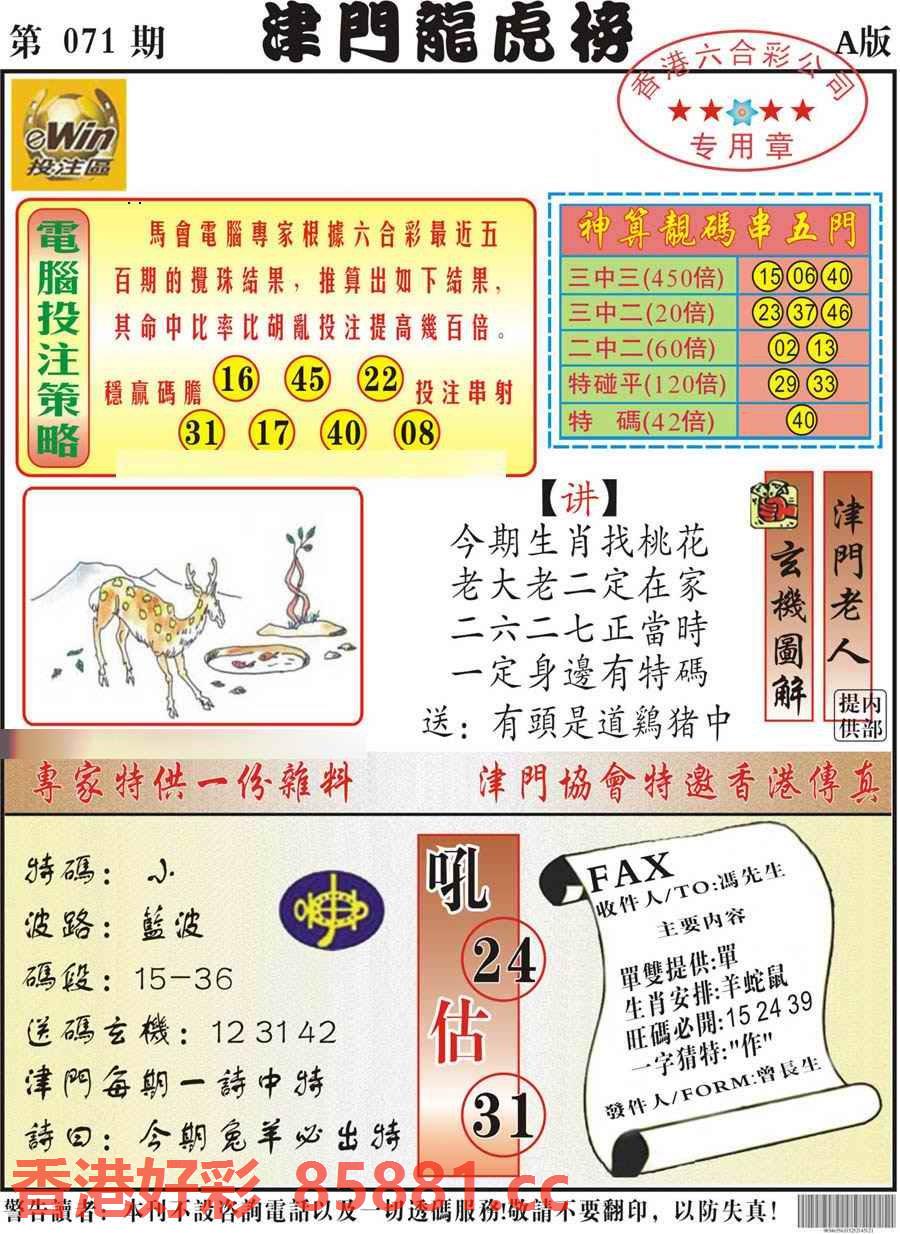 第 071 期
津門龍虎榜
A版
香港六合彩公司
专用章
eWin
投注區
電腦投注策略
馬會電腦專家根據六合彩最近五
百期的攪珠結果，推算出如下結果，
其命中比率比胡亂投注提高幾百倍。
穩贏碼膽 16 45 22 投注串射
31 17 40 08
神算靚碼串五門
三中三(450倍) 15 06 40
三中二(20倍) 23 37 46
二中二(60倍) 02 13
特碰平(120倍) 29 33
特 碼(42倍) 40
【讲】
今期生肖找桃花
老大老二定在家
二六二七正當時
一定身邊有特碼
送：有頭是道鷄猪中
玄機圖解
津門老人
内部提供
專家特供一份雜料
津門協會特邀香港傳真
特碼：小
波路：藍波
碼段：15-36
送碼玄機：12 31 42
津門每期一詩中特
詩曰：今期兔羊必出特
吼
24
估
31
FAX
收件人/TO:馮先生
主要内容
單雙提供:單
生肖安排:羊蛇鼠
旺碼必開:15 24 39
一字猜特:"作"
發件人/FORM:曾長生
香港好彩 85881.cc
警告讀者：本刊不設咨詢電話以及一切透碼服務!敬請不要翻印，以防失真!